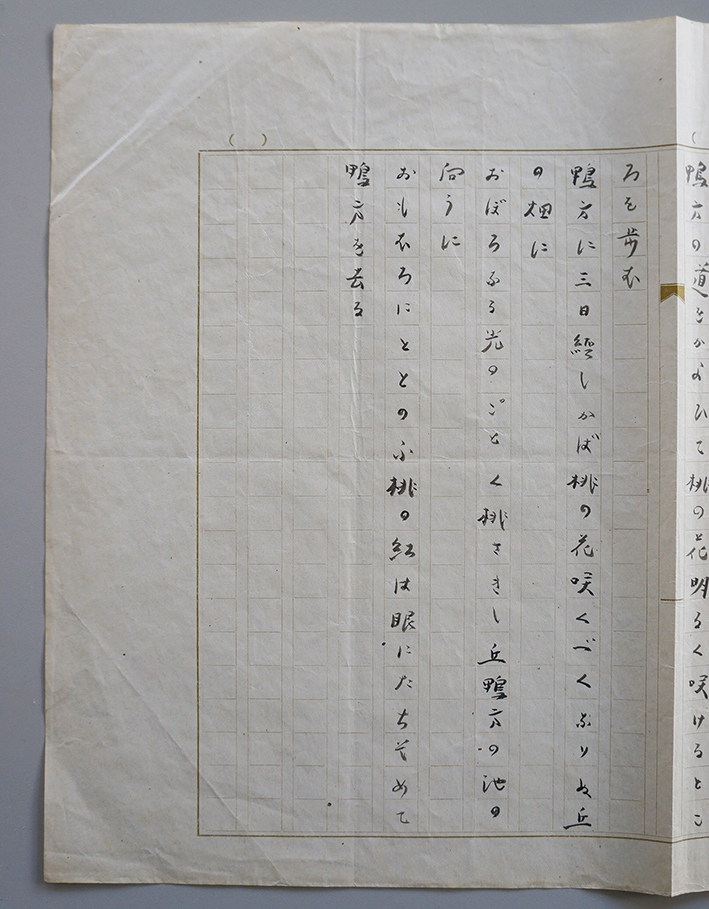 鴨方の道をかよひて桃の花明るく咲けるとこ
ろを歩む
鴨方に三日経しかば桃の花咲くべくなりぬ丘
の畑に
おぼろなる光のごとく桃さきし丘鴨方の池の
向うに
おもおろにととのふ桃の紅は眼にたちそめて
鴨方を去る